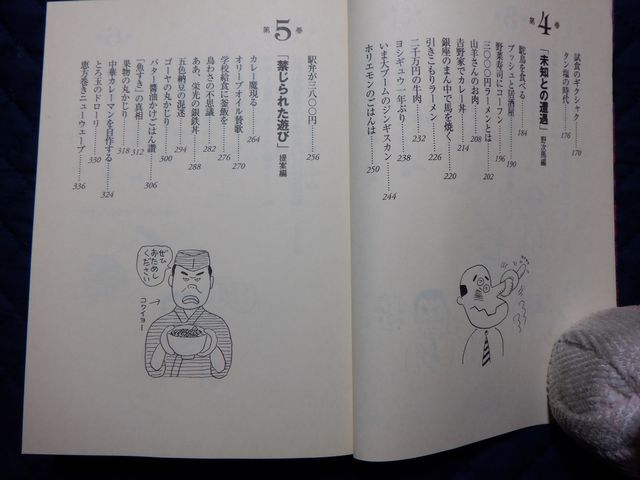 試食のギクシャク 170
タン塩の時代 176
第4巻
「未知との遭遇」 野次馬編
駝鳥を食べる 184
ブッシュと居酒屋 190
野菜寿司にコーフン 196
三〇〇〇円ラーメンとは 202
山羊さんのお肉 208
吉野家でカレー丼 214
銀座のまん中で馬を焼く 220
引きこもりラーメン 226
二千万円の牛肉 232
ヨシギュウ一年ぶり 238
いま大ブームのジンギスカン 244
ホリエモンのごはんは 250
駅弁が三八〇〇円 256
第5巻
「禁じられた遊び」 提案編
カレー魔現る 264
オリーブオイル賛歌 270
学校給食に釜飯を 276
鳥わさの不思議 282
ああ、栄光の銀鉄丼 288
五色納豆の混迷 294
ゴーヤの丸かじり 300
バター醤油かけごはん讃 306
「魚すき」の真相 312
果物の丸かじり 318
中華カレーマンを自作する 324
とろ玉のドローリ 330
恵方巻きニューウェーブ 336
ぜひ
おためし
ください
コワイョー